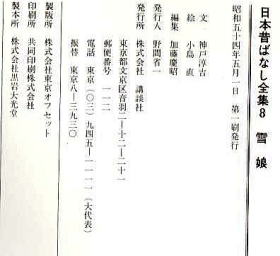 日本昔ばなし全集8 雪娘
昭和五十四年五月一日 第一刷発行
文 神戸淳吉
絵 小島直
編集 加藤慶昭
発行人 野間省一
発行所 株式会社 講談社
東京都文京区音羽二―十二―二十一
郵便番号 一一二
電話 東京(〇三)九四五―一一一一(大代表)
振替 東京八―三九三〇
製版所 株式会社東京オフセット
印刷所 共同印刷株式会社
製本所 株式会社黒岩大光堂